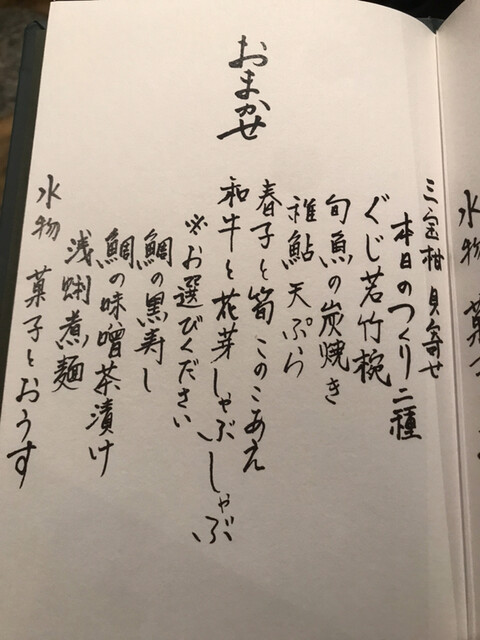 おまかせ
三宝柑 貝寄せ
本日のつくり二種
ぐじ若竹椀
旬魚の炭焼き
稚鮎天ぷら
春子と筍このこあえ
和牛と花芽しゃぶしゃぶ
※お選びください
鯛の黒寿し
鯛の味噌茶漬け
浅蜊煮麺
水物 菓子とおうす
水物